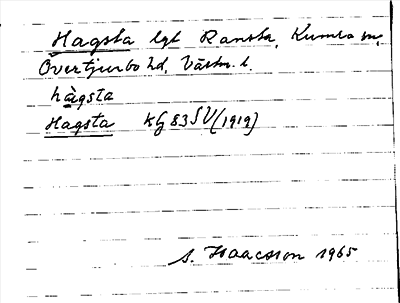 Hagsta lgt Ransta, Kumla sn,
Övertjurbo hd, Västm. l.
hàgsta
Hagsta kg 83 SV (1919)
S. Isaacsson 1965